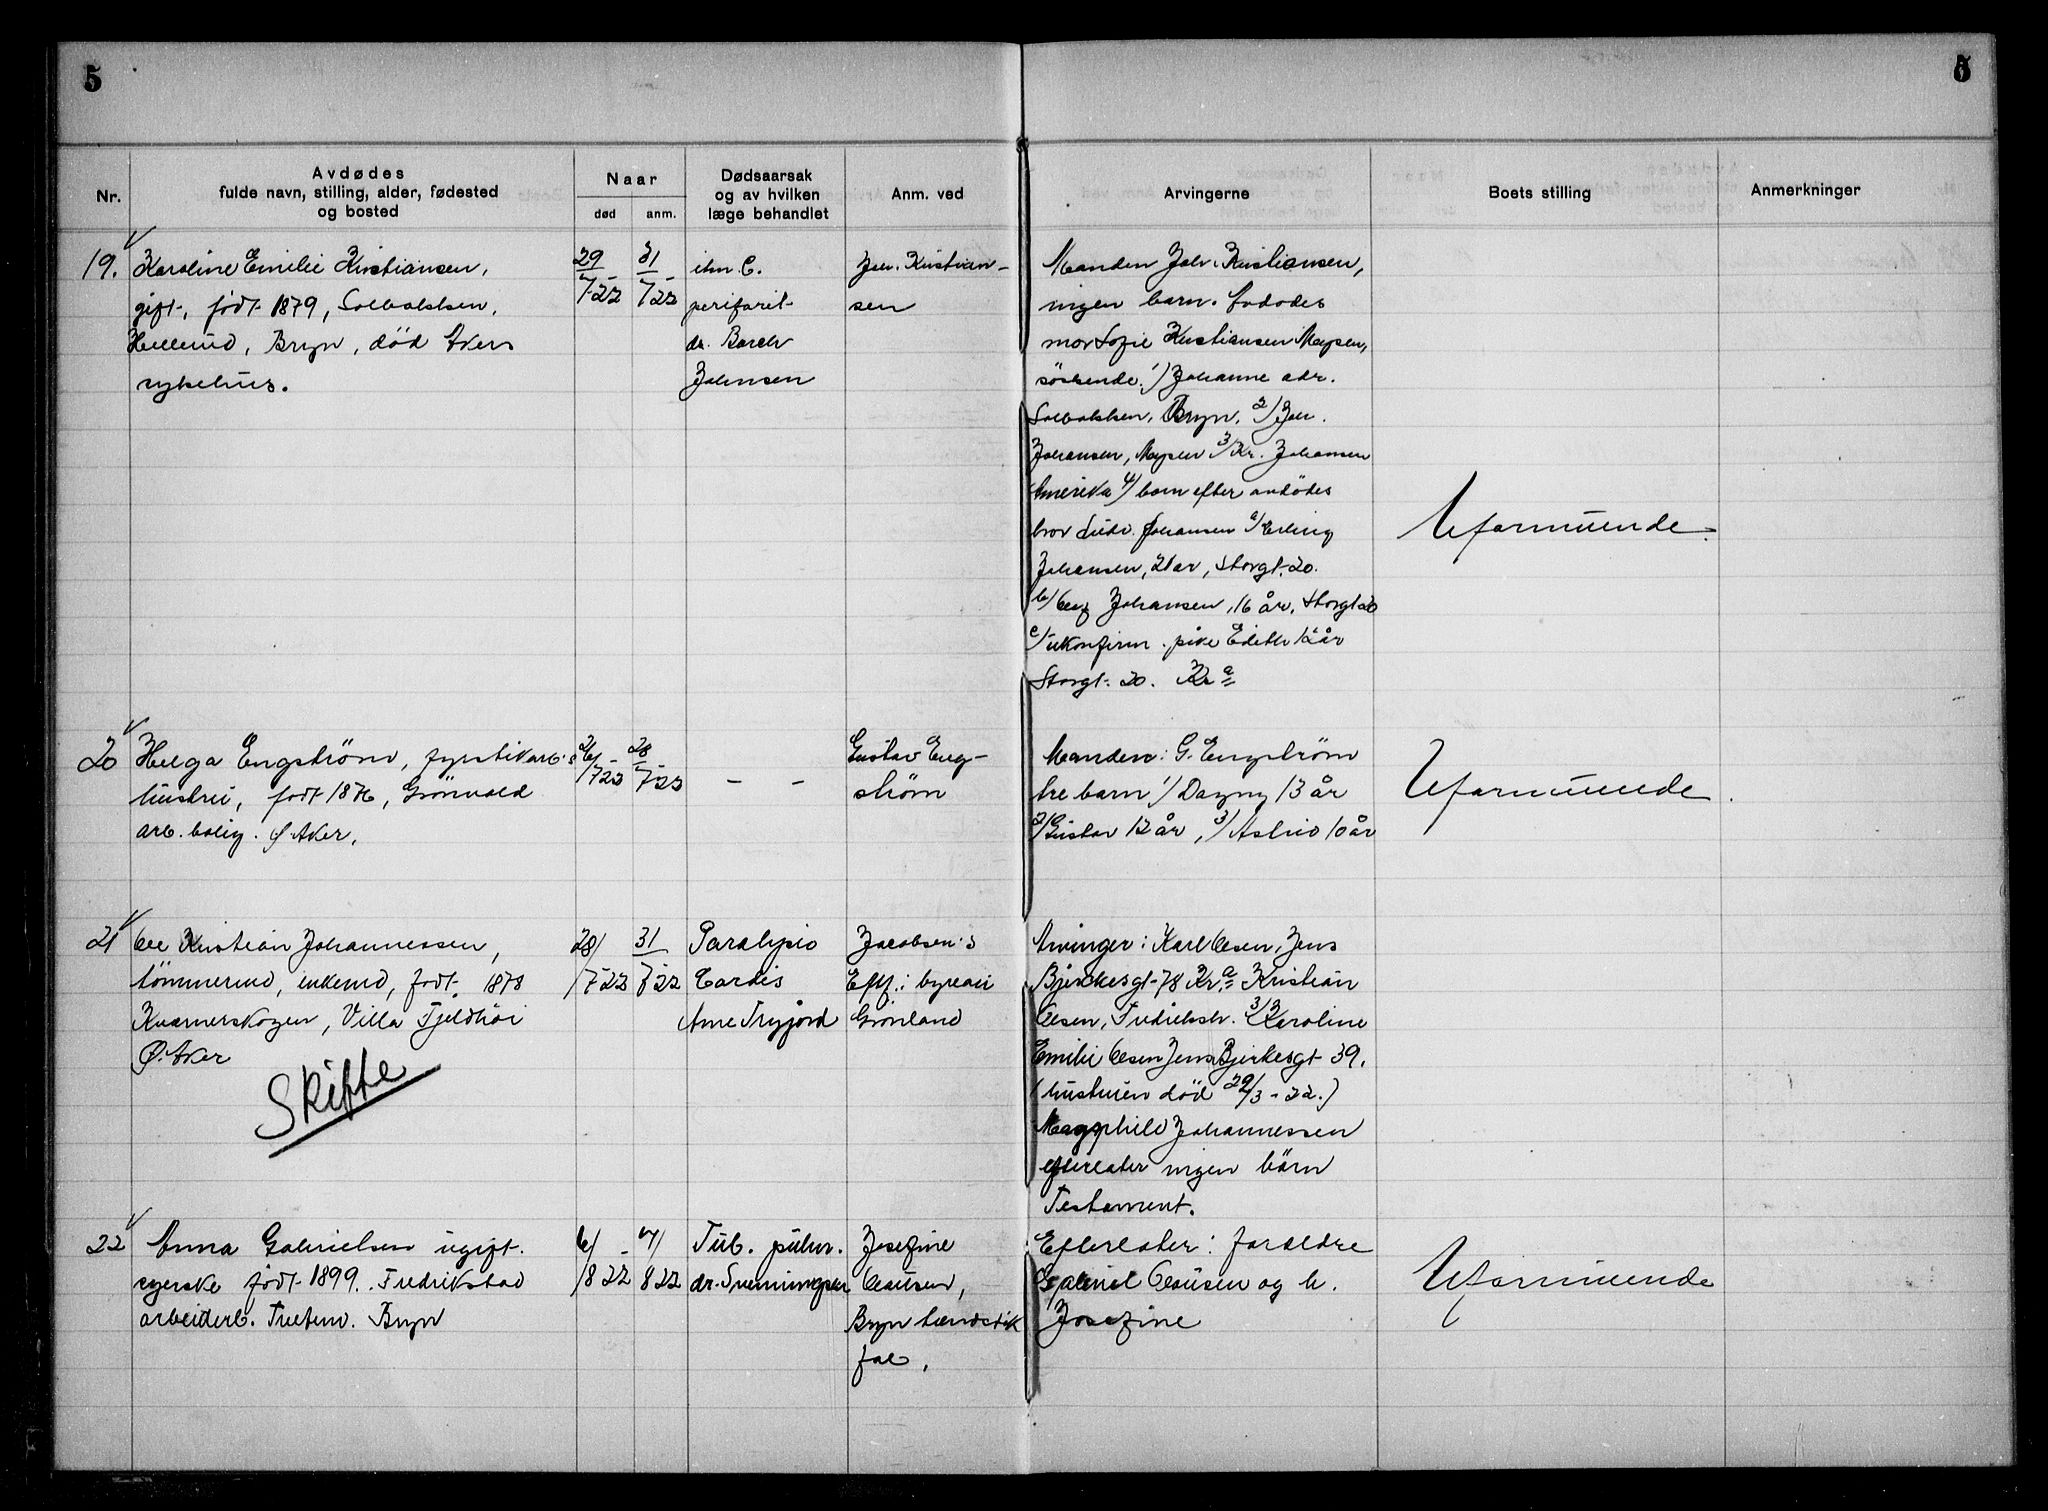 5
5
Nr.
Avdødes
fulde navn, stilling, alder, fødested
og bosted
Naar
død
anm.
Dødsaarsak
og av hvilken
læge behandlet
Anm. ved
Arvingerne
Boets stilling
Anmerkninger
19.
Karoline Emilie Kristiansen,
gift, født 1879, Solbakken,
Hellerud, Bryn, død Akers
sykehus.
29/7-22
31/7-22
dr. Borch
Johnsen
Joh. Kristian-
sen
Manden Joh. Kristiansen,
ingen barn. Avdødes
mor Sofie Kristiansen Mysen,
søskende 1) Johanne adr.
Solbakken, Bryn, 2) Joh.
Johansen, Mysen 3) Kr. Johansen
Amerika 4) barn efter avdødes
bror Ludv. Johansen a) Erling
Johansen, 21 år, Storgt. 20.
b) Johansen, 16 år, Storgt 20
c) ukonfirm. pike Edith 12 år
Storgt. 20. Kr.a
Uformuende.
20
Helga Engstrøm, fyrstikarb.s
hustru, født 1876, Grönvold
arb. bolig. Ø Aker.
26/7-22
28/7-22
- -
Gustav Eng-
strøm
Manden: G. Engstrøm
tre barn 1) Dagny 13 år
2) Gustav 12 år, 3) Astrid 10 år
Uformuende.
21
Ole Kristian Johannessen,
tömmermd, enkemd, født 1878
Kværnerskogen, Villa Fjeldhöi
Ø. Aker
Skifte
28/7-22
31/7 22
Paralysis
Cordis
Arne Tryjord
Jacobsen's
Eftf. byreau
Grønland
Arvinger: Karl Olsen, Jens
Bjerkesgt 78 Kr.a Kristian
Olsen, Fredrikst. 3) Karoline
Emilie Olsen Jens Bjerkesgt 39.
(hustruen död 29/3-22.)
Magnhild Johannessen
efterlater ingen börn
Testament.
22
Anna Gabrielsen ugift.
syerske født 1899. Fredrikstad
arbeiderb. Tvetenv. Bryn
6/8 22
7/8 22
Tub. pulm.
dr. Svenningsen
Josefine
Clausen,
Bryn tændstik
fab.
Efterlater: foraeldre
Gabriel Clausen og h.
Josefine
Uformuende